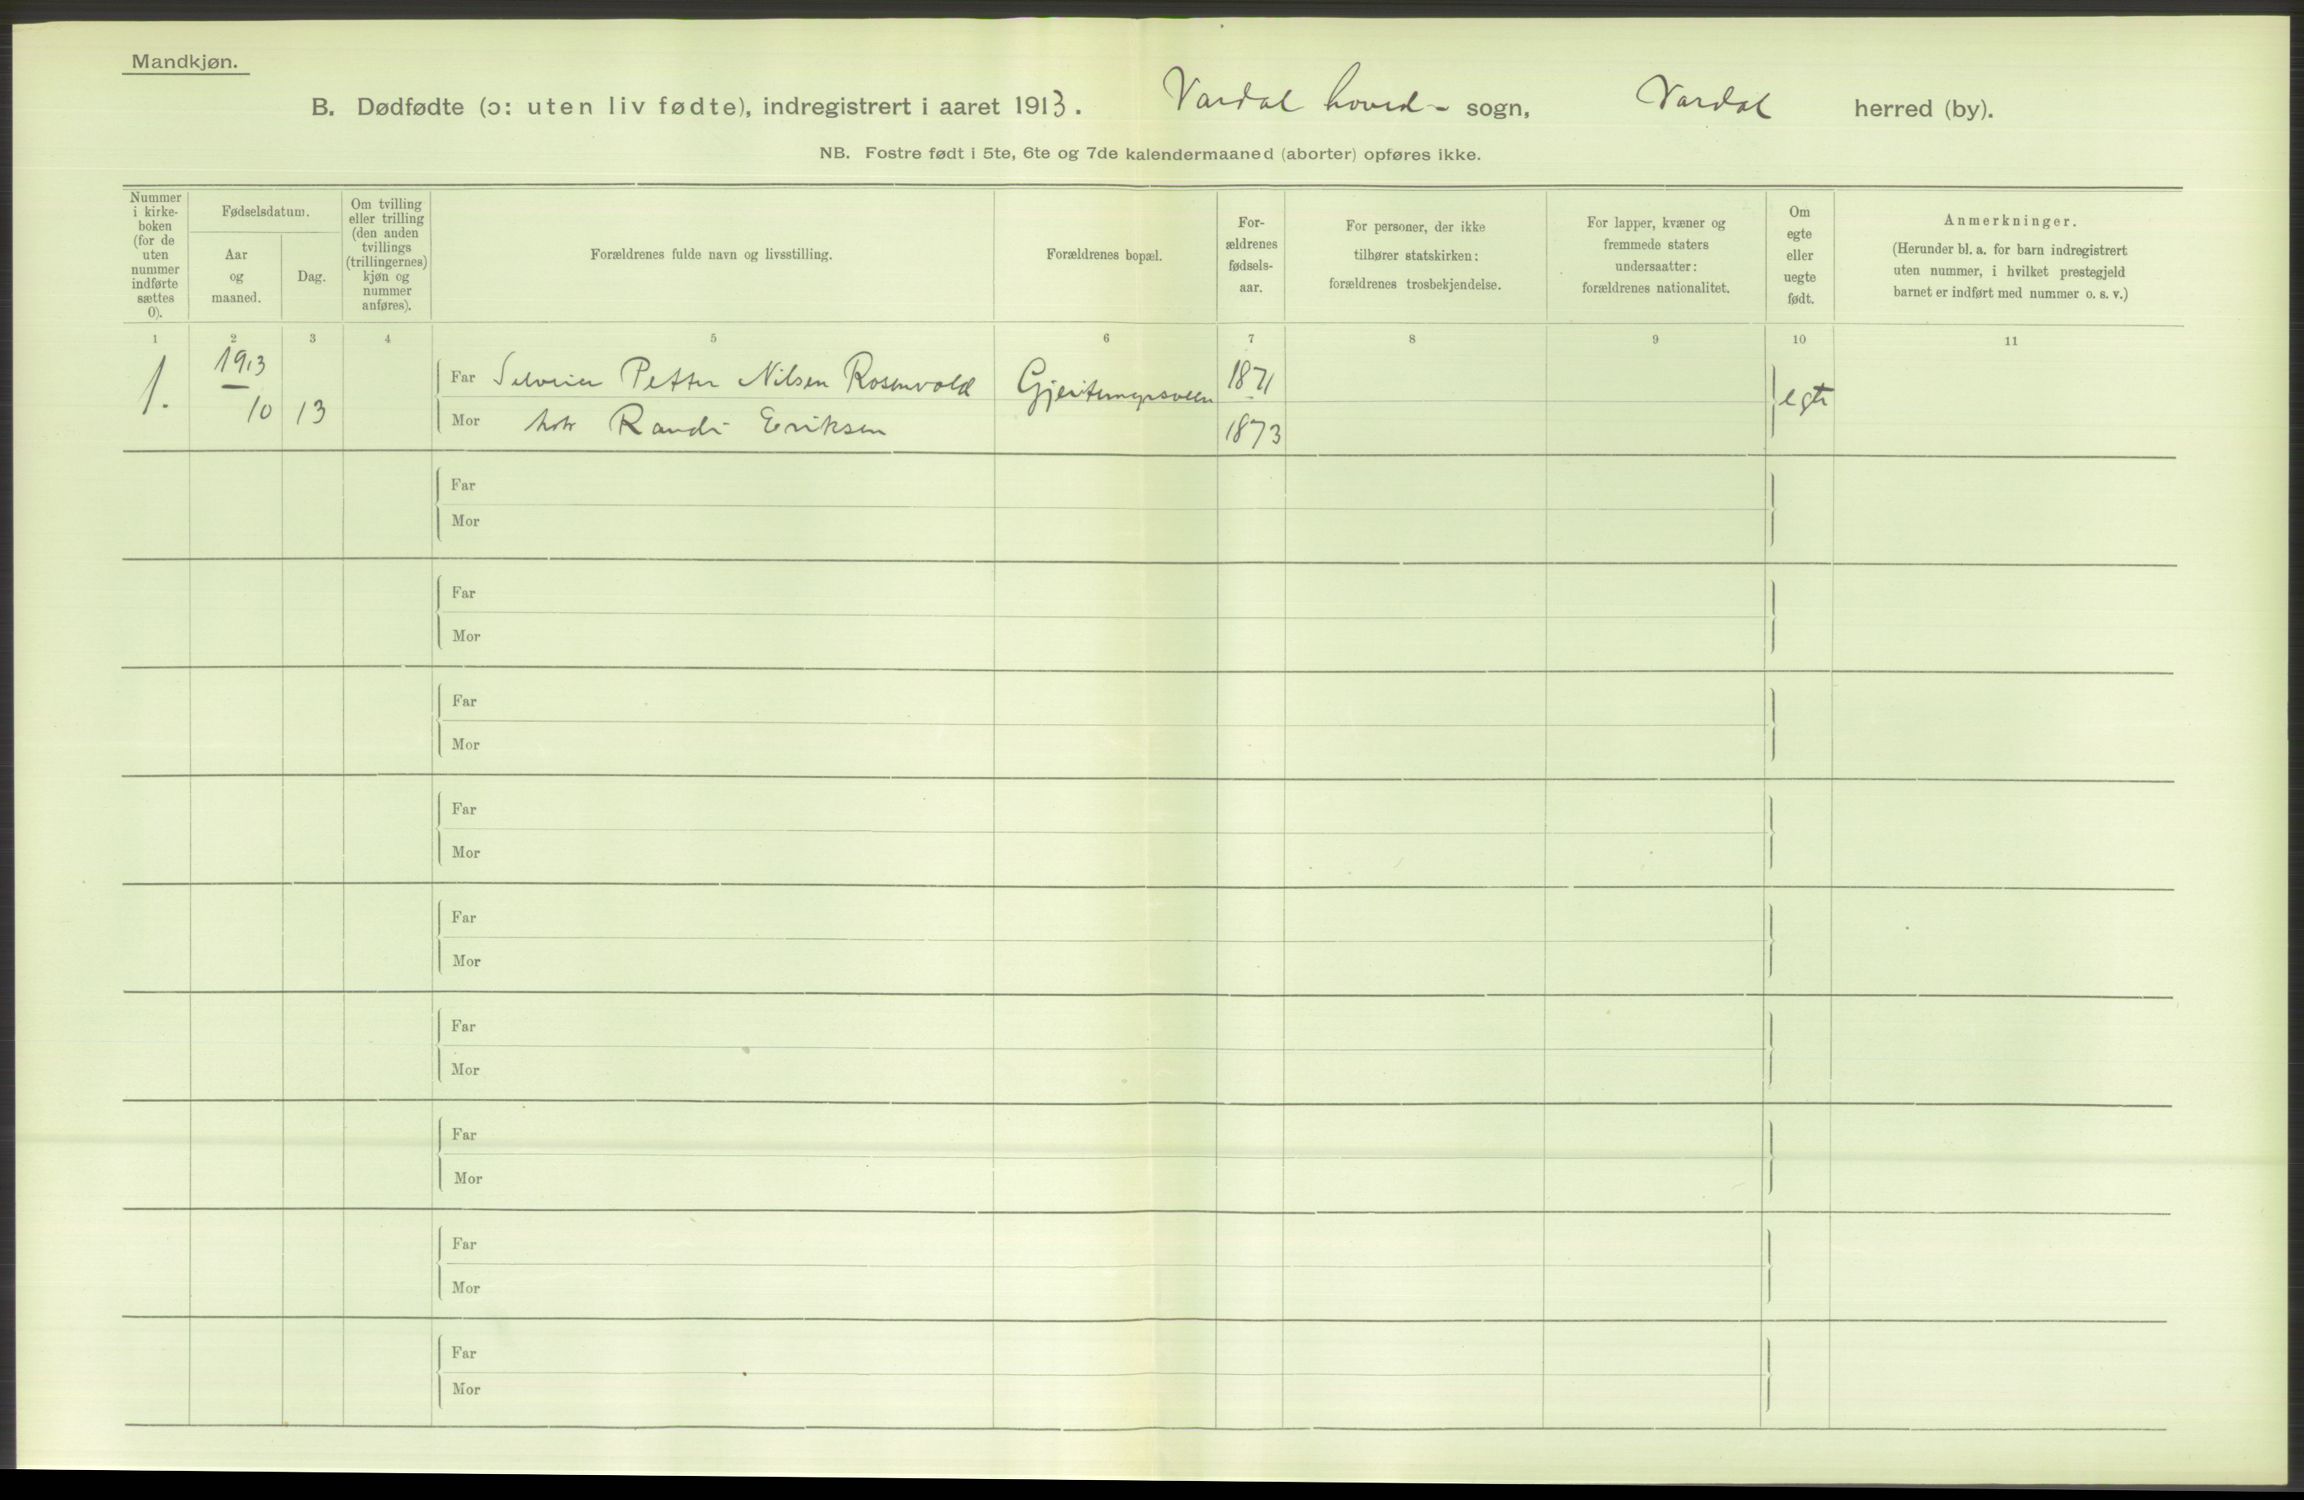 Mandkjøn.
B. Dødfødte (ɔ: uten liv fødte), indregistrert i aaret 1913. Vardal hoved- sogn, Vardal herred (by).
NB. Fostre født i 5te, 6te og 7de kalendermaaned (aborter) opføres ikke.
Nummer
i kirke-
boken
(for de
uten
nummer
indførte
sættes
0).
Fødselsdatum.
Aar
og
maaned.
Dag.
Om tvilling
eller trilling
(den anden
tvillings
(trillingernes)
kjøn og
nummer
anføres).
Forældrenes fulde navn og livsstilling.
Forældrenes bopæl.
For-
ældrenes
fødsels-
aar.
For personer, der ikke
tilhører statskirken:
forældrenes trosbekjendelse.
For lapper, kvæner og
fremmede staters
undersaatter:
forældrenes nationalitet.
Om
egte
eller
uegte
født.
Anmerkninger.
(Herunder bl. a. for barn indregistrert
uten nummer, i hvilket prestegjeld
barnet er indført med nummer o. s. v.)
1 2 3 4 5 6 7 8 9 10 11
1. 1913
10 13
Far Petter Nilsen Rosenvold 1871
Mor Randi Eriksen 1873
egte
Far
Mor
Far
Mor
Far
Mor
Far
Mor
Far
Mor
Far
Mor
Far
Mor
Far
Mor
Far
Mor